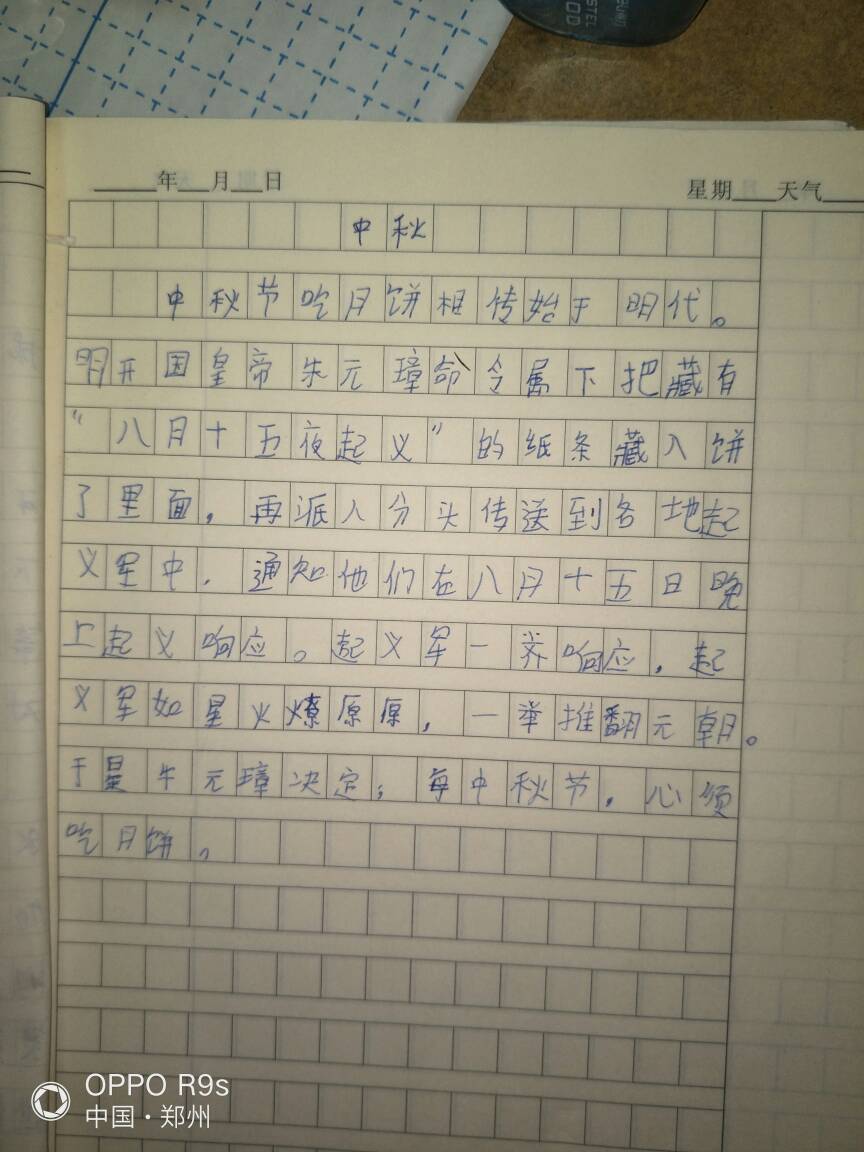 年 月 日 星期 天气
中秋
中秋节吃月饼相传始于明代。
明开国皇帝朱元璋命令属下把藏有
“八月十五夜起义”的纸条藏入饼
了里面，再派人分头传送到各地起
义军中，通知他们在八月十五日晚
上起义响应。起义军一齐响应，起
义军如星火燎原原，一举推翻元朝。
于是牛元璋决定；每中秋节，心须
吃月饼。
OPPO R9s
中国·郑州